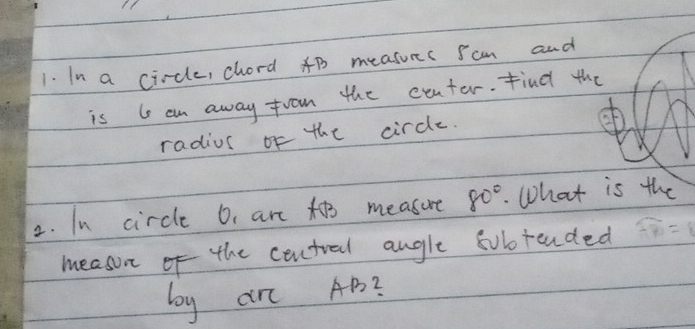 1. In a circle, chord AB measures 8 cm and
is 6 cm away from the center. Find the
radius of the circle.
2. In circle O, arc AB measure 80°. What is the
measure of the central angle subtended
by arc AB?